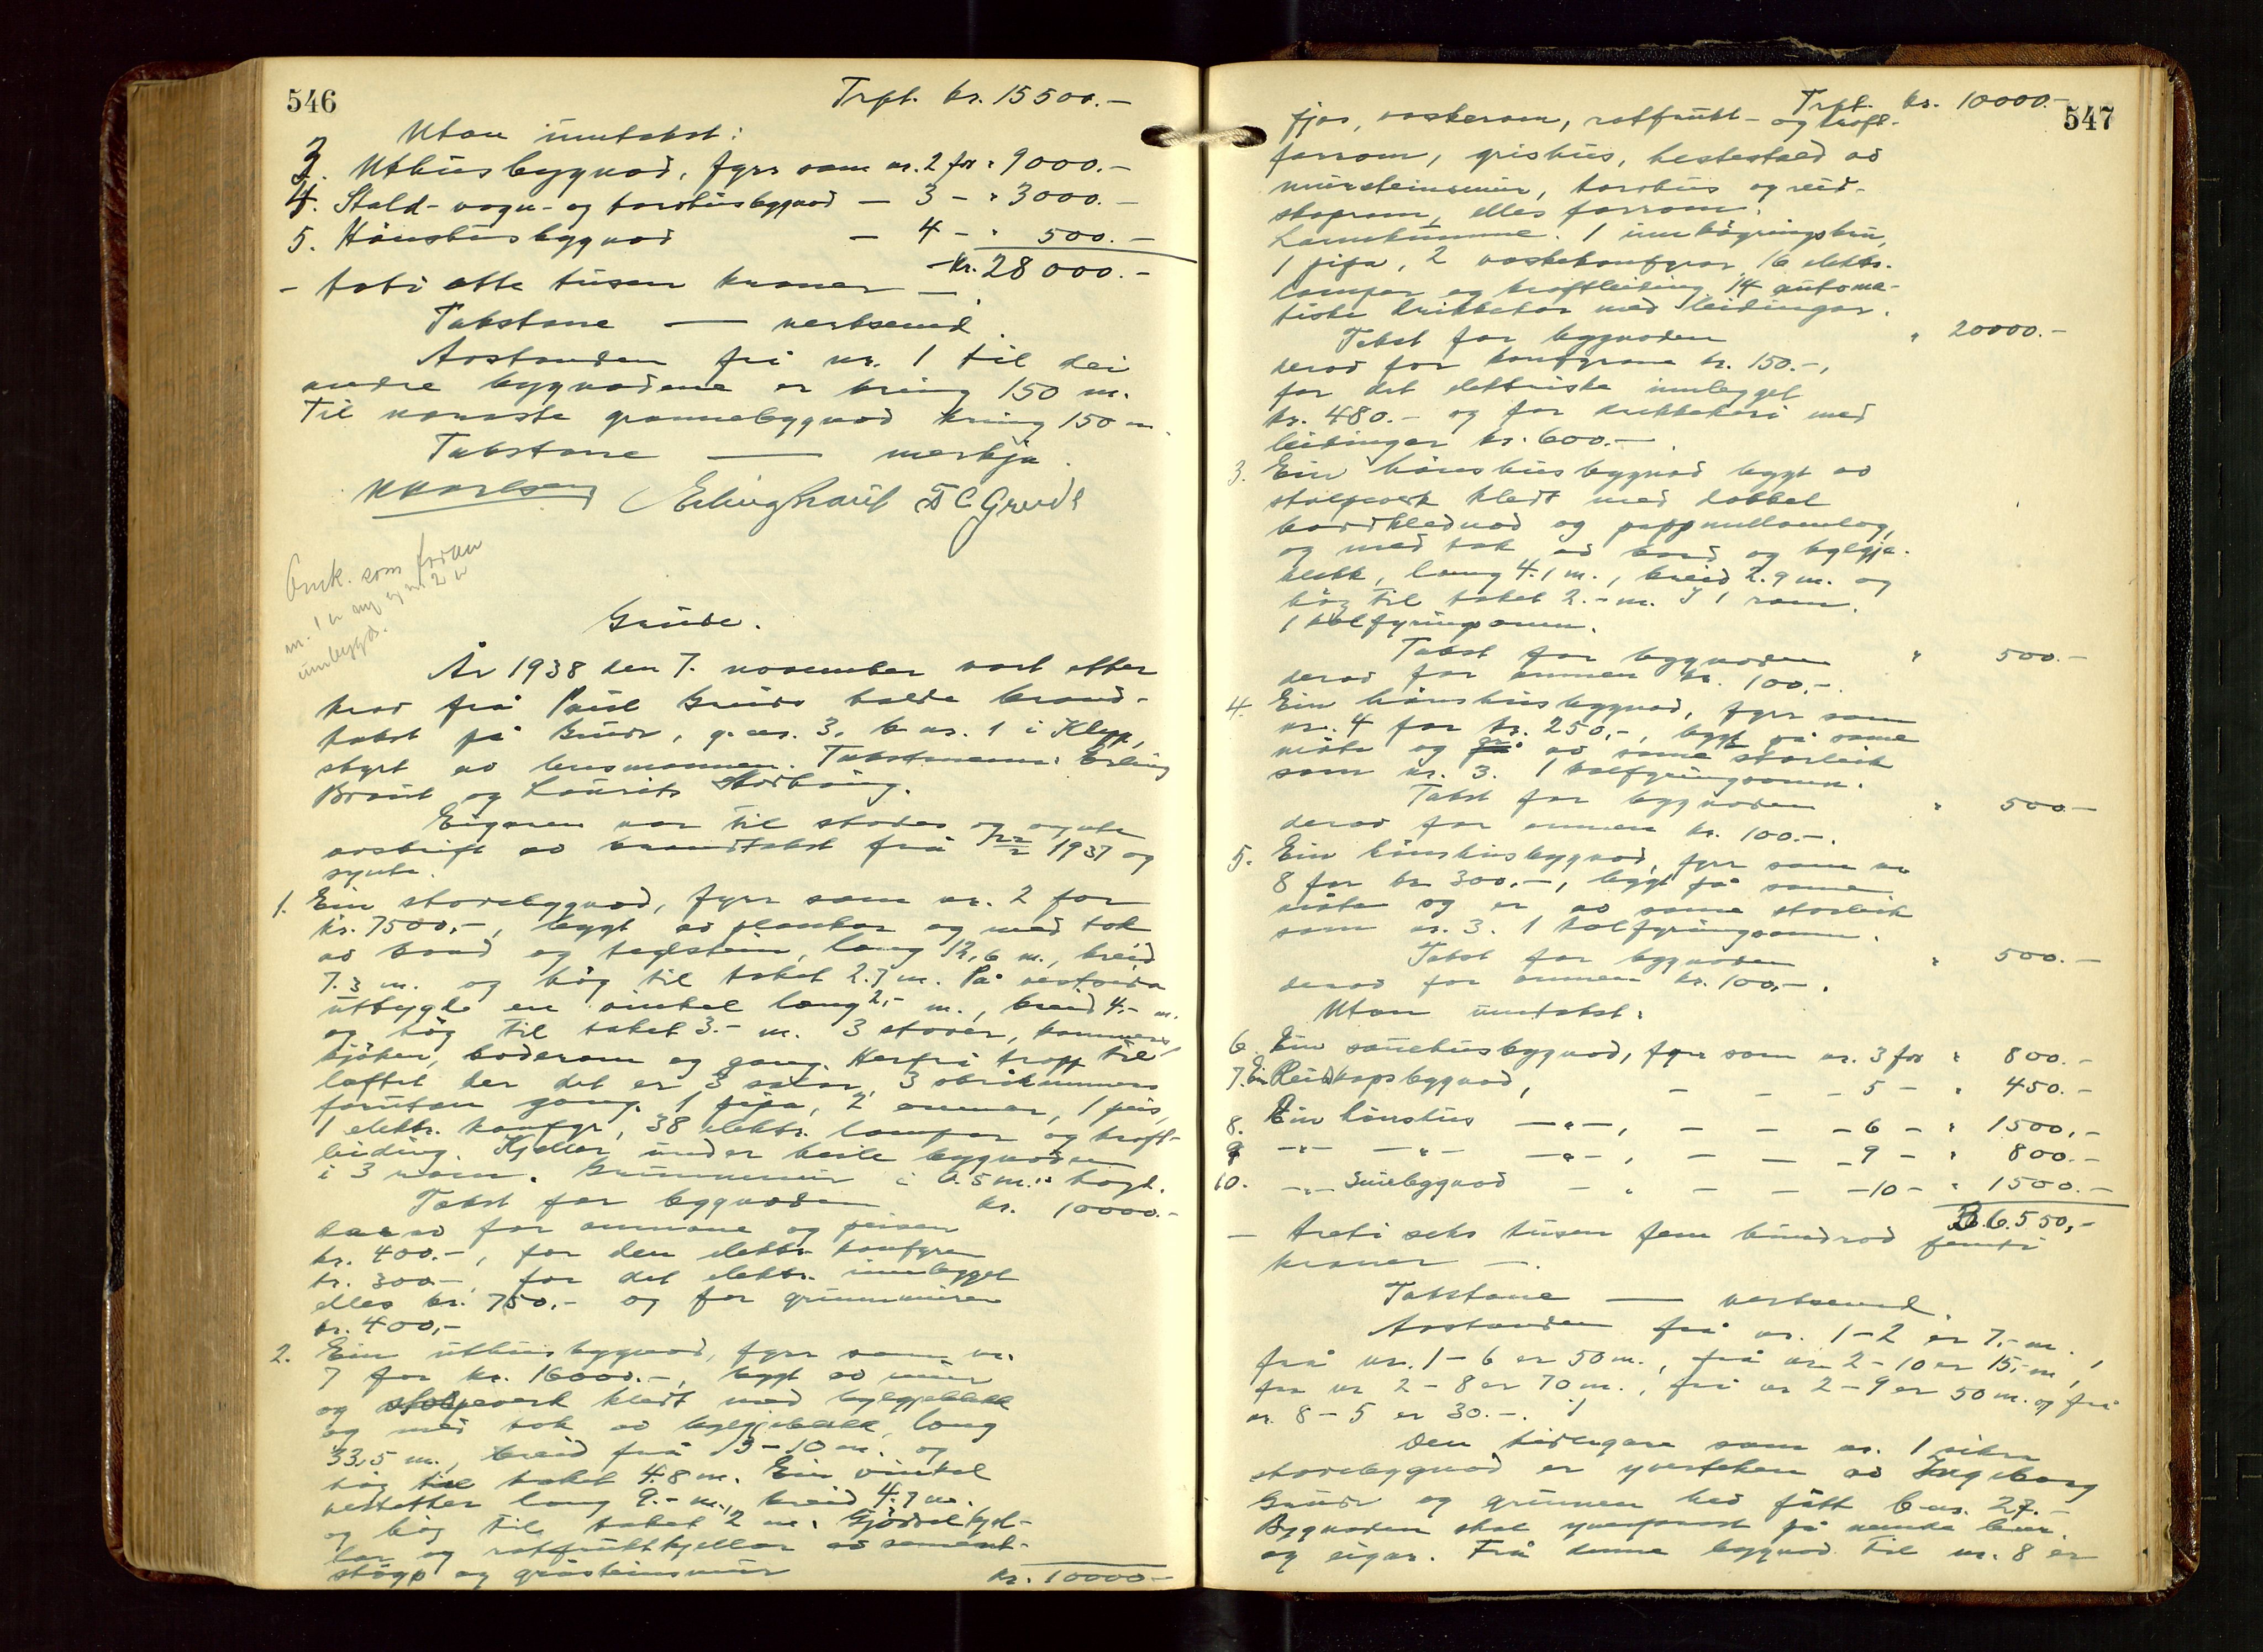 546
Trpt. kr. 15500.-
Utan umtakst:
3. Uthusbygnad, fyrr som nr. 2 for " 9000.-
4. Stald- vogn- og torvhusbygnad — 3 - " 3000.-
5. Hønsehusbygnad — 4 - " 500.-
Kr. 28000.-
- toti åtte tusen kroner -
Takstane — vertsend.
Avstanden frå nr. 1 til dei
andre bygnadene er kring 150 m.
Til næraste grannebygnad kring 150 m.
Takstane — merkja.
Erling Braut T C Grude
Omk. som foran
nr. 1 er ny og nr. 2 er
umbygd.
Grude.
År 1938 den 7. november vart etter
krav frå Paul Grude halde brand-
takst på Grude, g.nr. 3, b.nr. 1 i Klepp,
styrt av lensmannen. Takstmenn: Erling
Braut og Laurits Storhaug.
Eigaren var til stades og synte
avskrift av brandtakst frå 1937 og
synte.
1. Ein stovebygnad, fyrr som nr. 2 for
kr. 7500,-, bygt av plankar og med tak
av bord og teglstein, lang 12,6 m., breid
7.3 m. og høg til taket 2.7 m. På vestsida
utbygt en vinkel lang 2,- m., breid 4.- m.
og høg til taket 3.- m. 3 stover, kammers,
kjøken, boderom og gang. Herfrå tropp til
loftet der det er 3 salar, 3 kammers
forutan gang. 1 pipa, 2 omnar, 1 peis,
1 elektr. komfyr, 38 elektr. lampor og kraft-
leiding. Kjellar under heile bygnaden
i 3 rom. Grunnmur i 0.5 m.s høgd.
Takst for bygnaden kr. 10000.-
derav for omnane og peisen
kr. 400.-, for den elektr. komfyren
kr. 300.-, for det elektr. innlegget
elles kr. 750,- og for grunnmuren
kr. 400,-
2. Ein uthusbygnad, fyrr som nr.
7 for kr. 16000.-, bygt av mur
og stolpeverk kledt med bylgjeblikk
og med tak av bylgjeblikk, lang
33,5 m., breid frå 9-10 m. og
høg til taket 4.8 m. Ein vinkel
vestetter lang 9.- m., breid 4.7 m.
og høg til taket 2 m. Gjødselkjel-
lar og rotfruktkjellar av sement-
støyp og gråsteinsmur
kr. 10000-
547
Trpt. kr. 10000.-
fjos, vaskerom, rotfrukt- og kraft-
forrom, grishus, hestestald av
mursteinsmur, torvhus og reid-
skaprom, elles forrom.
Landkumme. 1 innkøyringsbru,
1 pipa, 2 vaskekomfyrar, 16 elektr.
lampor og kraftleiding, 14 automa-
tiske drikkekar med leidingar.
Takst for bygnaden " 20000.-
derav for komfyrane kr. 150.-,
for det elektriske innlegget
kr. 480.- og for drikkekari med
leidingar kr. 600.-.
3. Ein hønsehusbygnad bygt av
stolpeverk kledt med dobbel
bordklednad og pappmillomlag,
og med tak av bord og bylgje-
blikk, lang 4.1 m., breid 2.9 m. og
høg til taket 2.- m. I 1 rom.
1 kolfyringsomn.
Takst for bygnaden " 500.-
derav for omnen kr. 100.-.
4. Ein hønsehusbygnad, fyrr som
nr. 4 for kr. 250,-, bygt på same
måte og er av same storleik
som nr. 3. 1 kolfyringsomn.
Takst for bygnaden " 500-
derav for omnen kr. 100.-.
5. Ein hønsehusbygnad, fyrr som nr.
8 for kr. 300.-, bygt på same
måte og er av same storleik
som nr. 3. 1 kolfyringsomn.
Takst for bygnaden " 500.-
derav for omnen kr. 100,-.
Utan umtakst:
6. Ein sauehusbygnad, fyrr som nr. 3 for " 800.-
7. Ein Reidskapsbygnad, - - - 5 - " 450.-
8. Ein hønsehus —"—, - - - 6 - " 1500,-
9 —"— —"— —"—, - - - 9 - " 800.-
10. —"— Smiebygnad - " - - - 10 - " 1500.-
36.550,-
- treti seks tusen fem hundrad femti
kroner -.
Takstane — vertsend.
Avstanden frå nr. 1-2 er 7,- m.,
frå nr. 1-6 er 50 m., frå nr. 2-10 er 15,- m.,
fra nr 2-8 er 70 m., frå nr 2-9 er 50 m. og frå
nr. 8-5 er 30.-.
Den tidlegare som nr. 1
stovebygnad er yverteken av Ingeborg
Grude og grunnen hev fått b.nr. 27.-
Bygnaden skal på nemnde b.nr.
og eigar. Frå denne bygnad til nr. 8 er